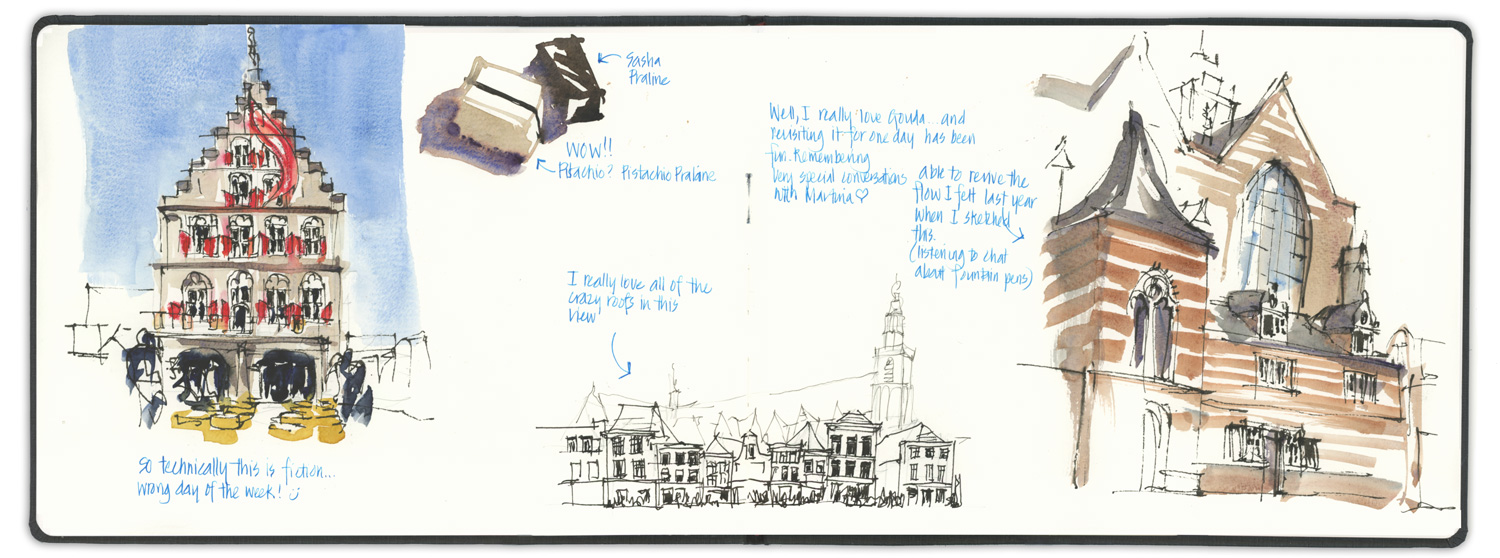 So technically this is fiction...
wrong day of the week!
Sasha
Praline
WOW!!
Pistachio? Pistachio Praline
I really love all of the
crazy roofs in this
view
Well, I really love Gouda... and
revisiting it for one day has been
fun. Remembering
very special conversations
with Martina♡
able to revive the
flow I felt last year
when I sketched
this.
(listening to chat
about fountain pens)